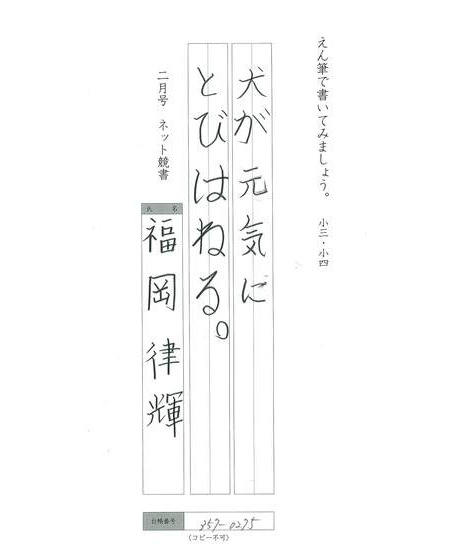 えん筆で書いてみましょう。　小三・小四
犬が元気に
とびはねる。
二月号　ネット競書
氏　名
福岡律輝
台帳番号
357-0275
（コピー不可）